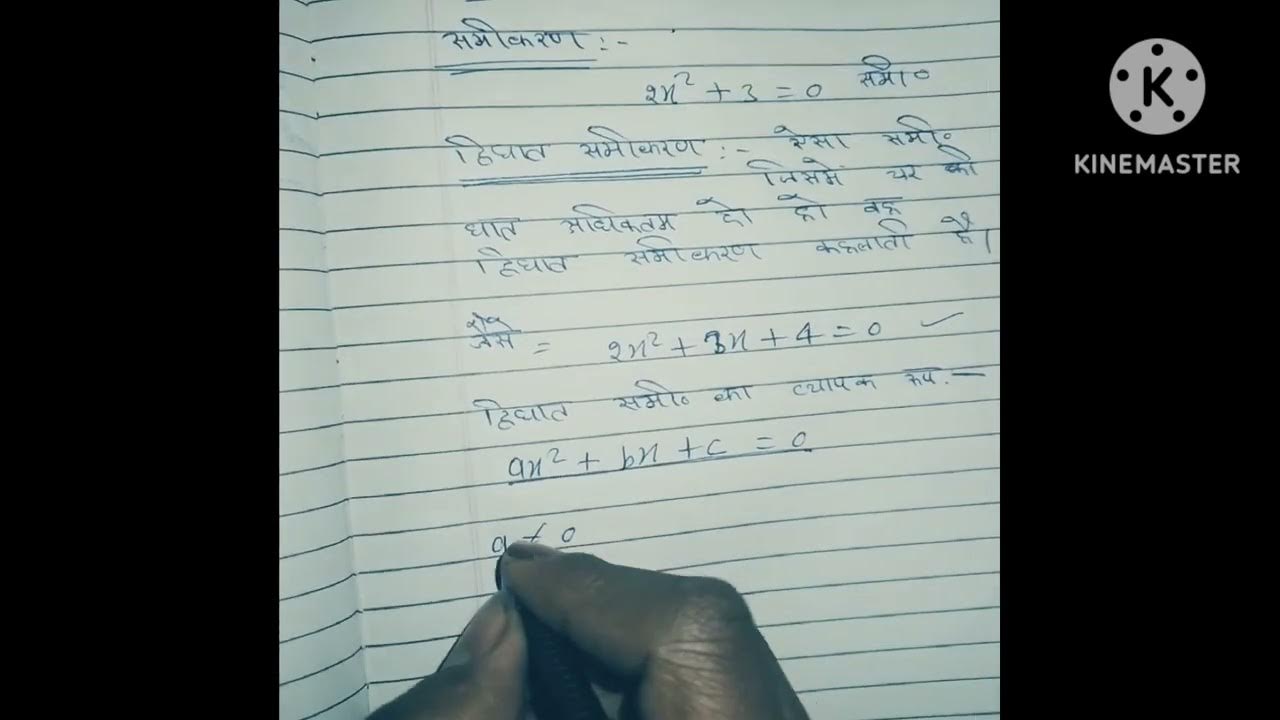 समीकरण :-
2x² + 3 = 0 समी०
द्विघात समीकरण :- ऐसा समी०
जिसमें चर की
घात अधिकतम दो हो वह
द्विघात समीकरण कहलाती है।
जैसे = 2x² + 3x + 4 = 0 ✓
द्विघात समी० का व्यापक रूप :-
ax² + bx + c = 0
a ≠ 0
K
KINEMASTER